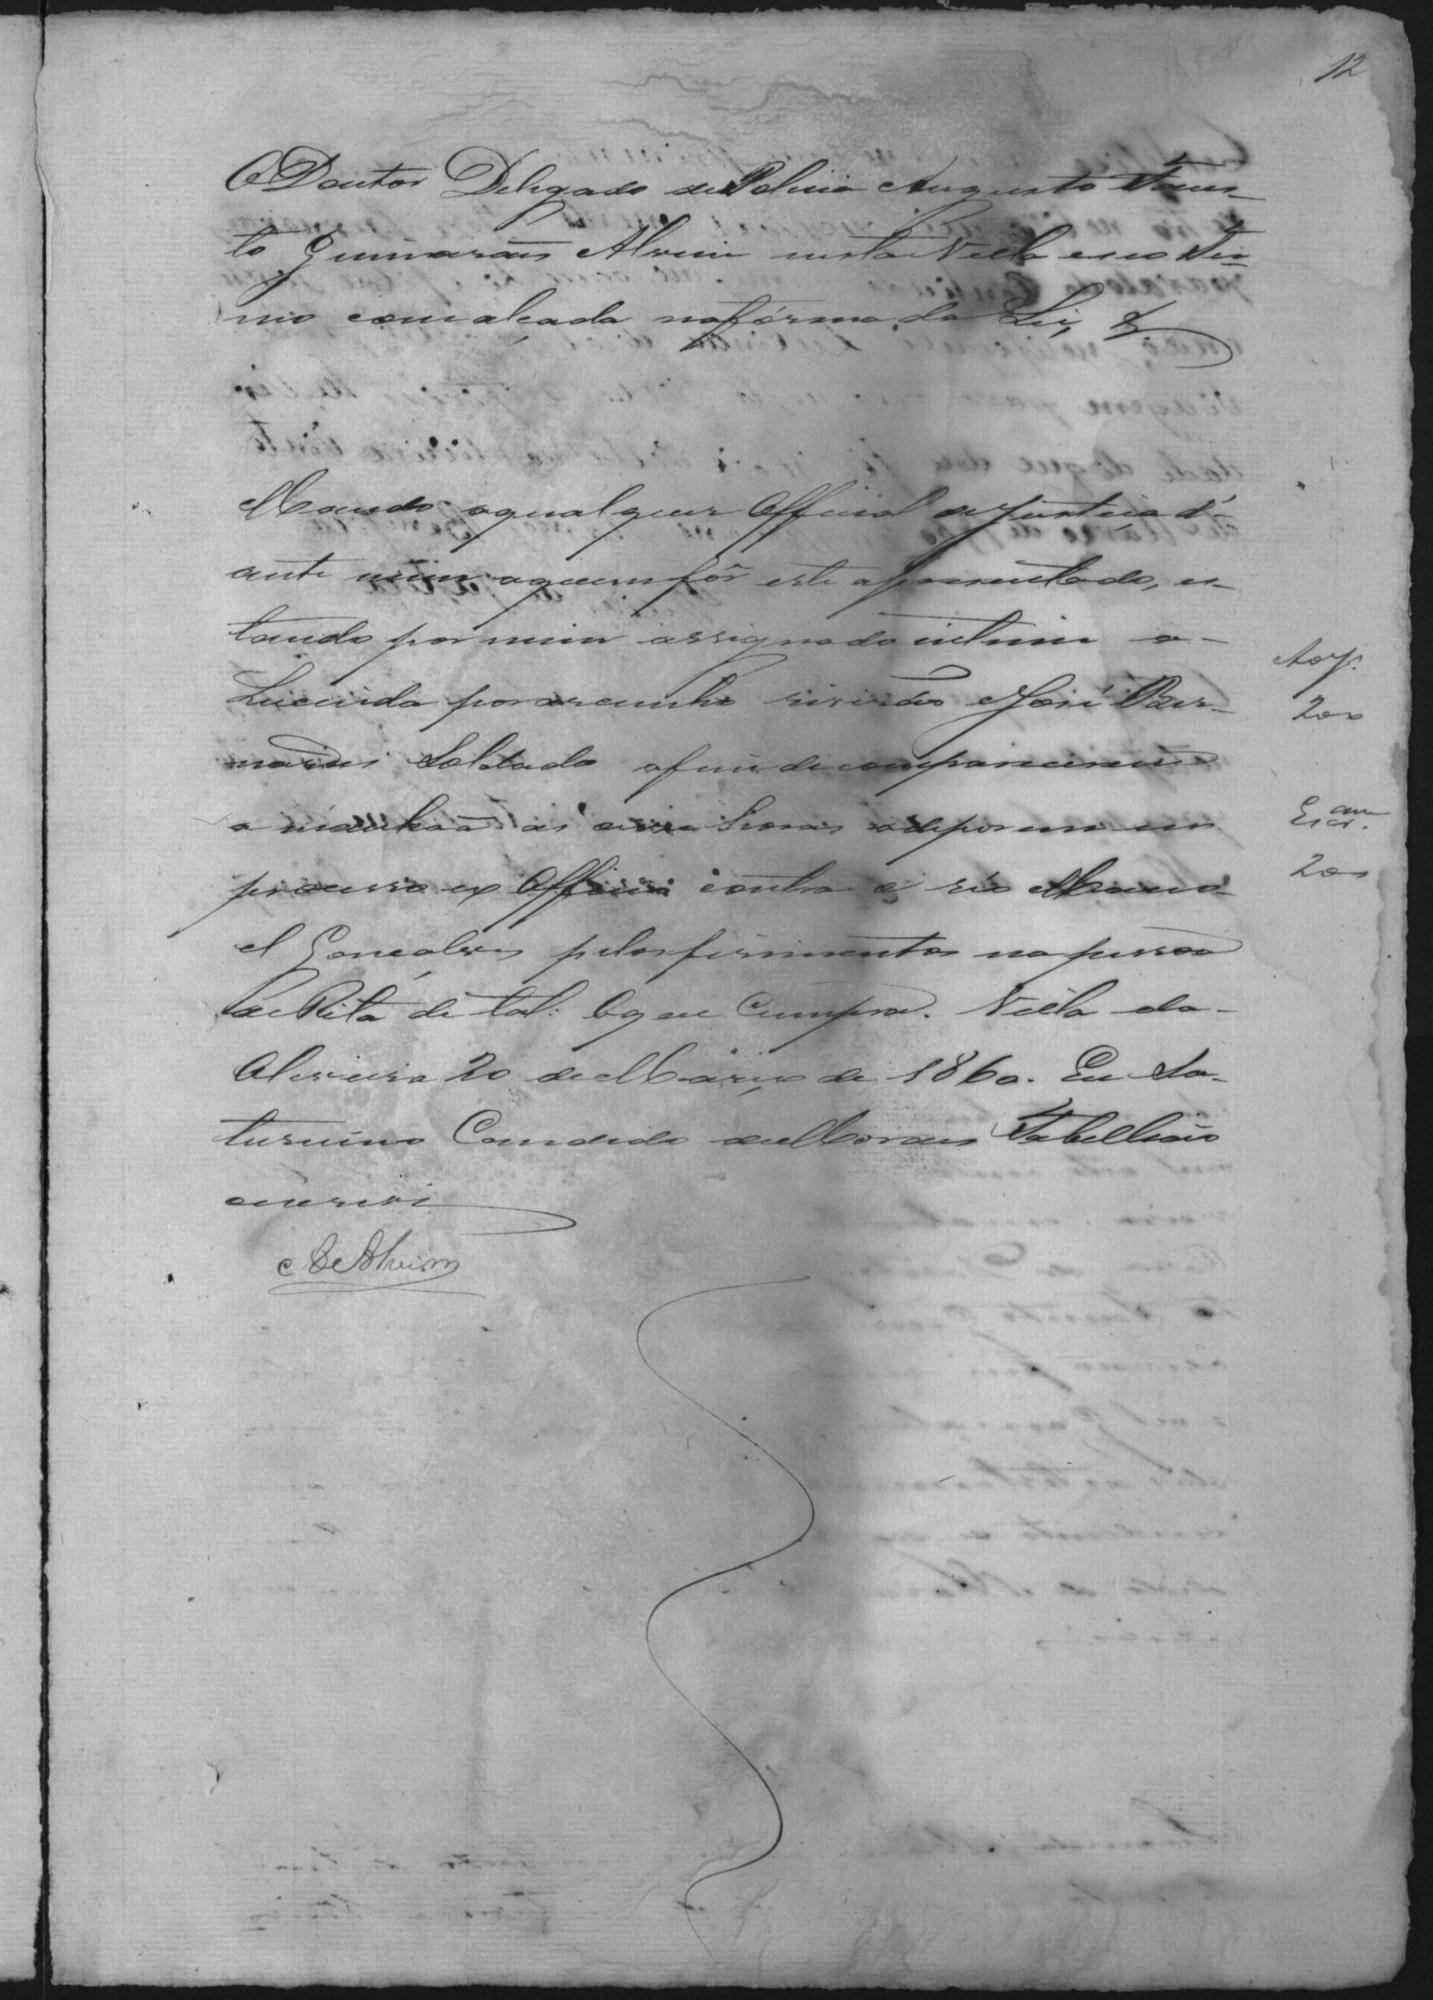 12
O Doutor Delegado de Policia Augusto
to Guimarães Alvim nesta Villa e seo Ter-
mo com alçada na fórma da Lei, &
Mando a qualquer Official de Justiça d'-
ante mim a quem fôr este aprezentado, es-
tando por mim assignado intime a-
Lucinda por José Ber-
Soldado afim de comparecerem
a manhaã as horas a deporem em
processo ex Officio contra o réo Mano-
el Gonçalves pelos ferimentos na pessoa
de Rita de tal: O que Cumpra. Villa da-
Oliveira 20 de Março de 1860. Eu Sa-
turnino Candido de Moraes Tabellião
escrevi
Alvim
200
Escr.am
200